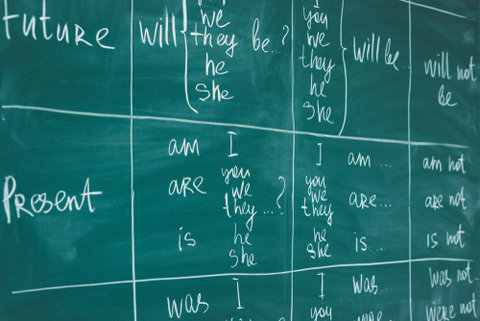 Future
Will
we
they be...?
he
she
I
you
we
they
he
she
will be...
will not
be
Present
am I
are you
we
they...?
is he
she
I am...
you
we are...
they
he is...
she
am not
are not
is not
was I
I was...
you
was not...
were not